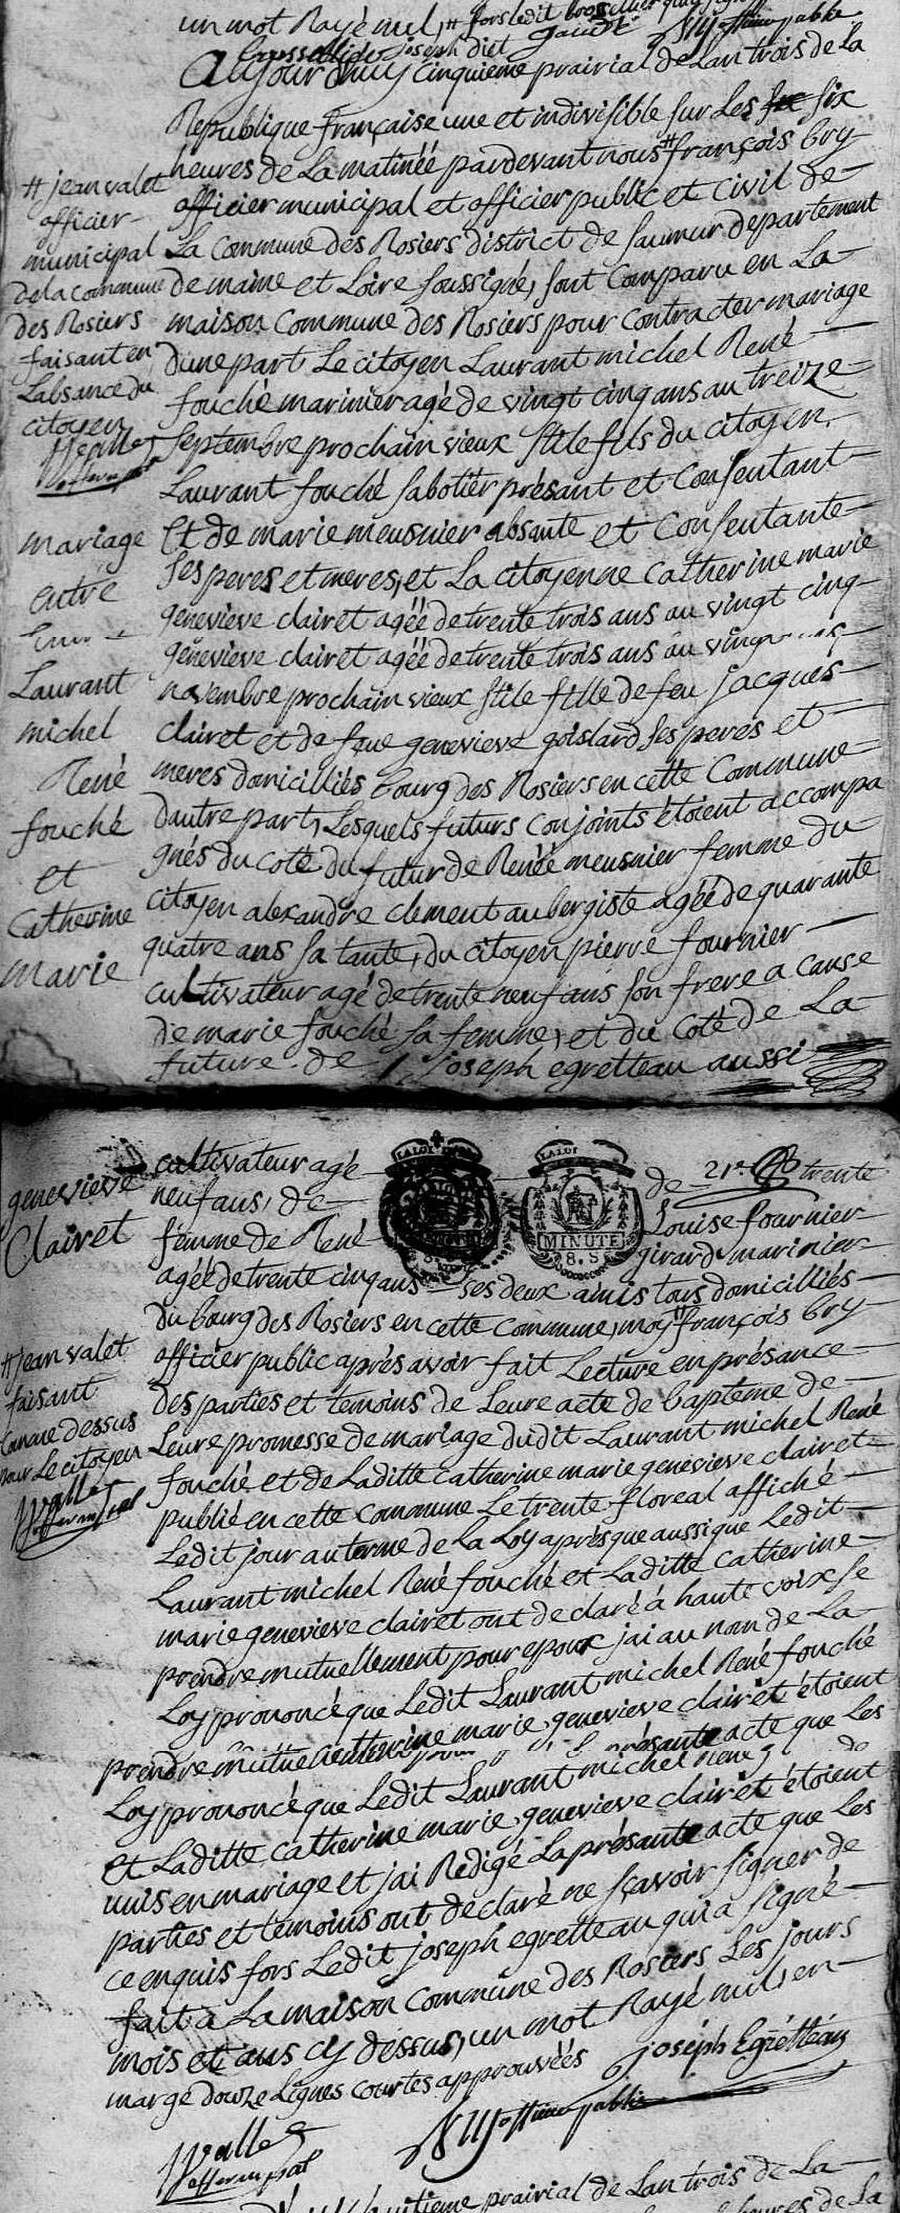 un mot Rayé nul, # fors ledit
joseph dict
Aujourdhuy cinquieme prairial de Lan trois de La
Republique française une et indivisible sur Les six six
heures de La matinéé pardevant nous # françois bry
officier municipal et officier public et civil de
La Commune des Rosiers district de saumur departement
de maine et Loire soussigné, sont Comparu en La
maison Commune des Rosiers pour contracter mariage
dune part Le citoyen Laurant michel René
fouché marinier agé de vingt cinq ans au treize
septembre prochain vieux stile fils du citoyen
Laurant fouché sabotier présant et consentant
Et de marie meusnier absante et consentante
ses peres et meres, et La citoyenne Catherine marie
genevieve clairet agéé de trente trois ans au vingt cinq
genevieve clairet agéé de trente trois ans au
novembre prochain vieux stile fille de feu jacques
clairet et de feue genevieve goislard ses peres et
meres domicilliés bourg des Rosiers en cette Commune
dautre part, Lesquels futurs conjoints étoient accompa
gnés du coté du futur de Renéé meusnier femme du
citoyen alexandre clement aubergiste agéé de quarante
quatre ans sa tante, du citoyen pierre fournier
cultivateur agé de trente neuf ans son frere a cause
de marie fouché sa femme, et du coté de La
future de joseph egretteau aussi
# jean valet
officier
municipal
de la commune
des Rosiers
faisant en
Labsance du
citoyen
JValle
off mupal
mariage
entre
Laurant
michel
René
fouché
et
Catherine
marie
genevieve
Clairet
cultivateur agé de 21 trente
neuf ans, de Louise fournier
femme de René girard marinier
agéé de trente cinq ans ses deux amis tous domicilliés
du bourg des Rosiers en cette commune, moy # françois bry
officier public après avoir fait Lecture en présance
des parties et temoins de Leure acte de bapteme de
Leure promesse de mariage dudit Laurant michel René
fouché et de Laditte catherine marie genevieve clairet
publié en cette commune Le trente floreal affiché
Ledit jour au terme de La Loy après que aussi que Ledit
Laurant michel René fouché et Laditte Catherine
marie genevieve clairet ont declaré à haute voix se
prendre mutuellement pour epoux jai au nom de La
Loy prononcé que Ledit Laurant michel René fouché
prendre mutue catherine marie genevieve clairet étoient
présante acte que Les
Loy prononcé que Ledit Laurant michel René
et Laditte catherine marie genevieve clairet étoient
unis en mariage et jai Redigé La présante acte que Les
parties et temoins ont declaré ne sçavoir signer de
ce enquis fors Ledit joseph egretteau qui a signé
fait a La maison commune des Rosiers Les jours
mois et ans cy dessus, un mot Rayé nul, en
marge douze Lignes courtes approuvéés
joseph Egretteau
JValle
off mupal
Bry officier public
# jean valet
faisant
comme dessus
pour Le citoyen
JValle
off mupal
LA LOI
LA LOI
MINUTE
8. S.
huitieme prairial de Lan trois de La
heures de La